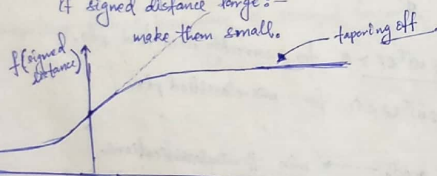 If signed distance large:-
make them small.
tapering off
f(signed
distance)